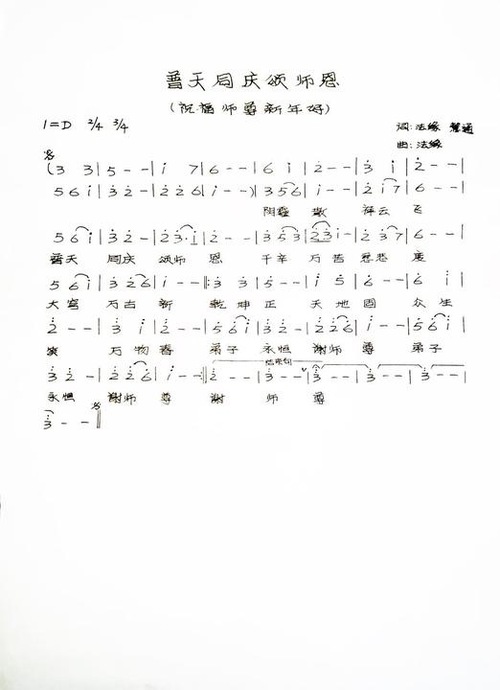 普天同庆颂师恩
(祝福师尊新年好)
1=D 2/4 3/4 词:法缘 慧通
曲:法缘
(3 3 | 5 - - | i 7 | 6 - - | 6 i | 2 - - | 3 i | 6 - - |
5 6 i | 3 2 - | 2 2 6 | i - - | i - -) | 3 5 6 | i - - | 2 i 7 | 6 - - |
阴霾 散 祥云 飞
5 6 i | 3 2 - | 2 3 · i | 2 - - | 3 5 3 | 2 3 i | 2 i 7 | 6 - - |
普天 同庆 颂师 恩 千辛 万苦 慈悲 度
5 6 i | 3 2 - | 2 2 6 | i - - |: 3 3 | 5 - - | i 5 | 6 - - | 6 i |
大穹 万古 新 乾坤 正 天地 固 众生
2 - - | 3 i | 2 - - | 5 6 i | 3 2 - | 2 2 6 | i - - | i - - | 5 6 i |
万物 春 弟子 永恒 谢师 尊 弟子
3 2 - | 2 2 6 | i - - :| 2 - - | 3 - - | 3 - - | 3 - - | 3 - - |
结束句
永恒 谢师 尊 谢 师 尊
3 - - ||